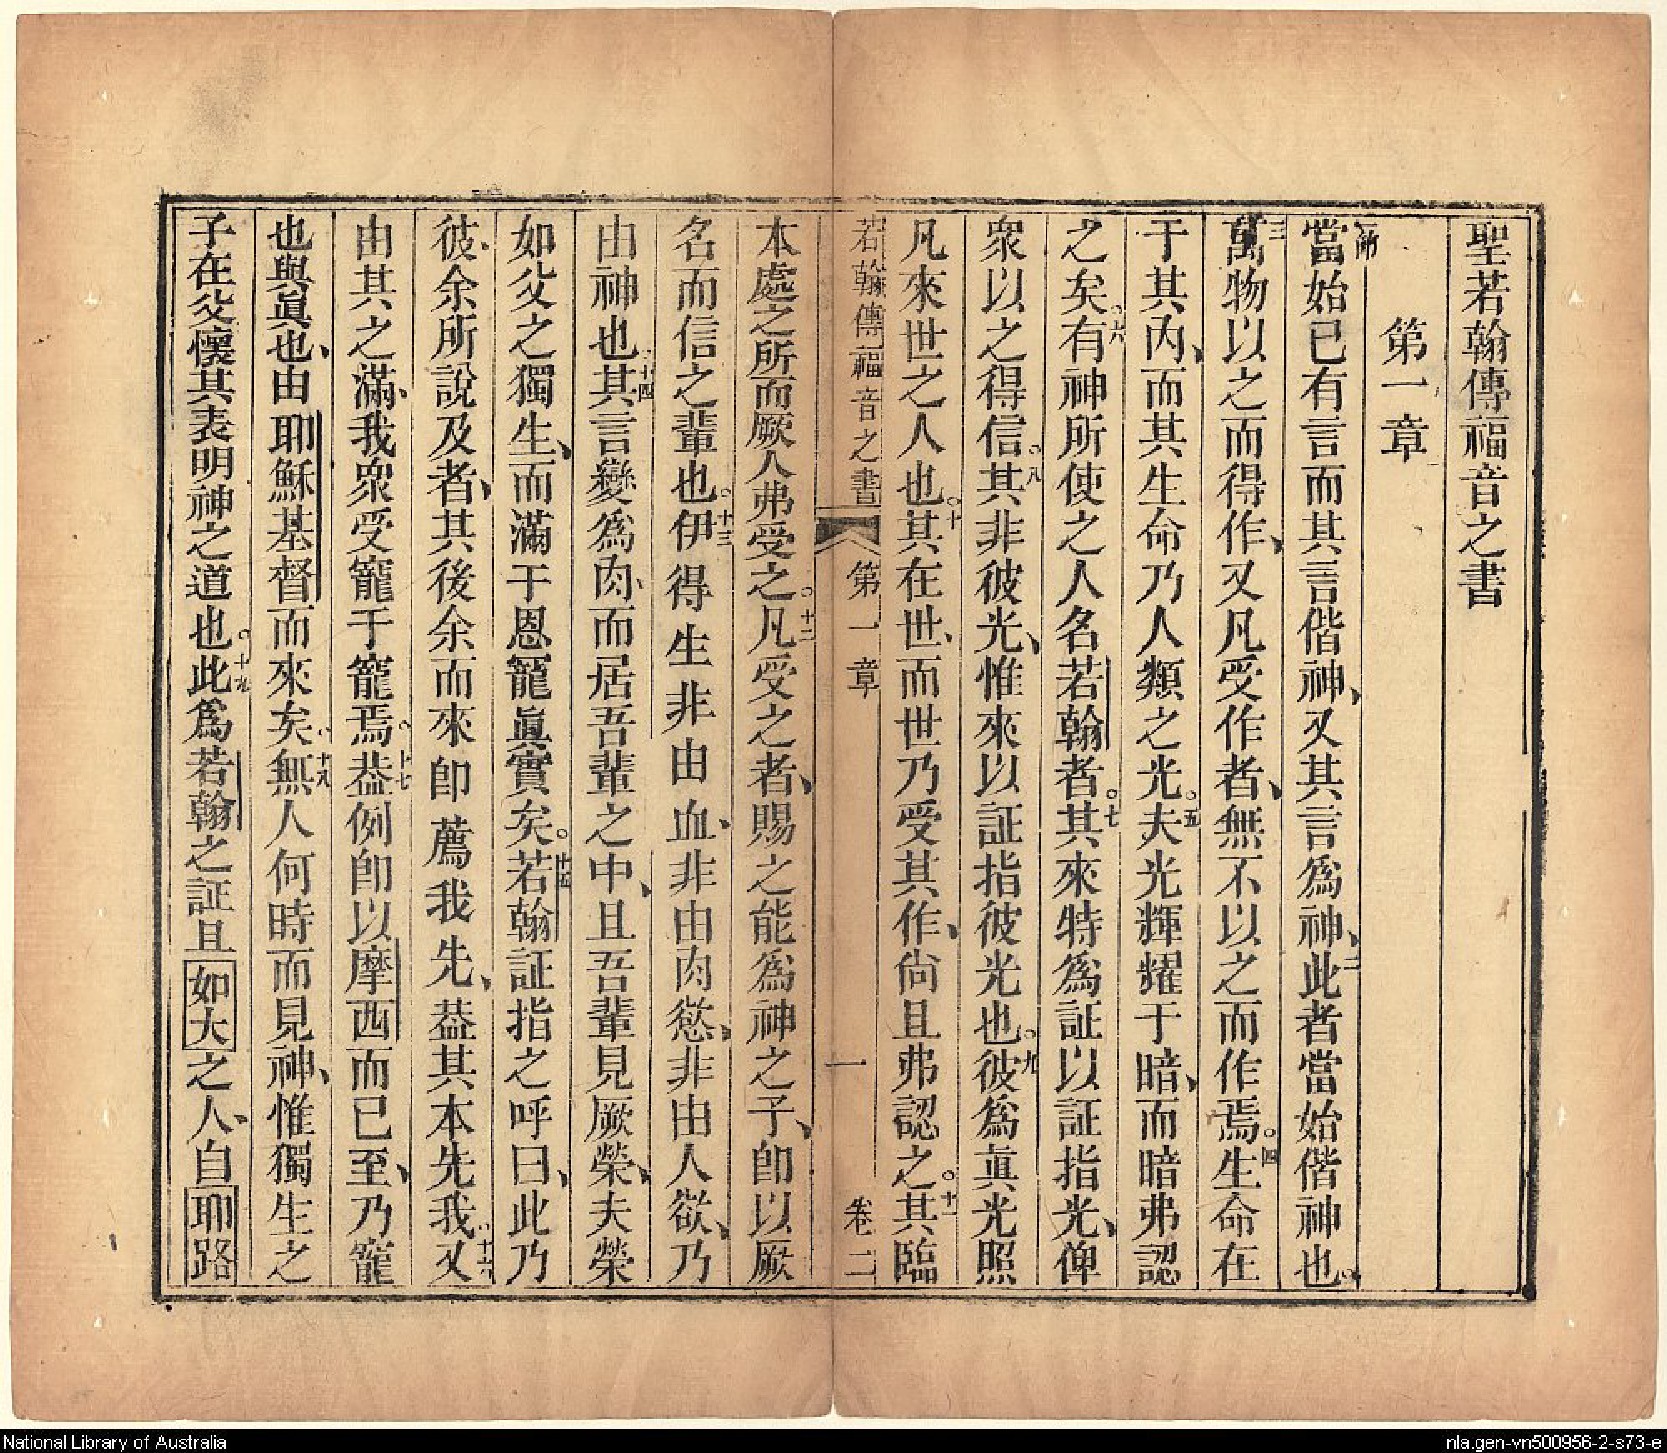 聖若翰傳福音之書
第一章
一節當始已有言而其言偕神、又其言爲神、二此者當始偕神也。
三萬物以之而得作、又凡受作者、無不以之而作焉。四生命在
于其內、而其生命乃人類之光。五夫光輝耀于暗、而暗弗認
之矣。六有神所使之人名若翰者。七其來特爲証以証指光、俾
衆以之得信。八其非彼光、惟來以証指彼光也。九彼爲眞光照
凡來世之人也。十其在世、而世乃受其作、尙且弗認之。十一其臨
若翰傳福音之書 第一章 一 卷二
本處之所而厥人弗受之。十二凡受之者、賜之能爲神之子、卽以厥
名而信之輩也。十三伊得生非由血、非由肉慾、非由人欲、乃
由神也。十四其言變爲肉、而居吾輩之中、且吾輩見厥榮、夫榮
如父之獨生、而滿于恩寵眞實矣。十五若翰証指之呼曰、此乃
彼、余所說及者、其後余而來卽薦我先、葢其本先我。十六又
由其之滿、我衆受寵于寵焉。十七葢例卽以摩西而已至、乃寵
也與眞也、由耶穌基督而來矣。十八無人何時而見神、惟獨生之
子在父懷其表明神之道也。十九此爲若翰之証且如大之人、自耶路